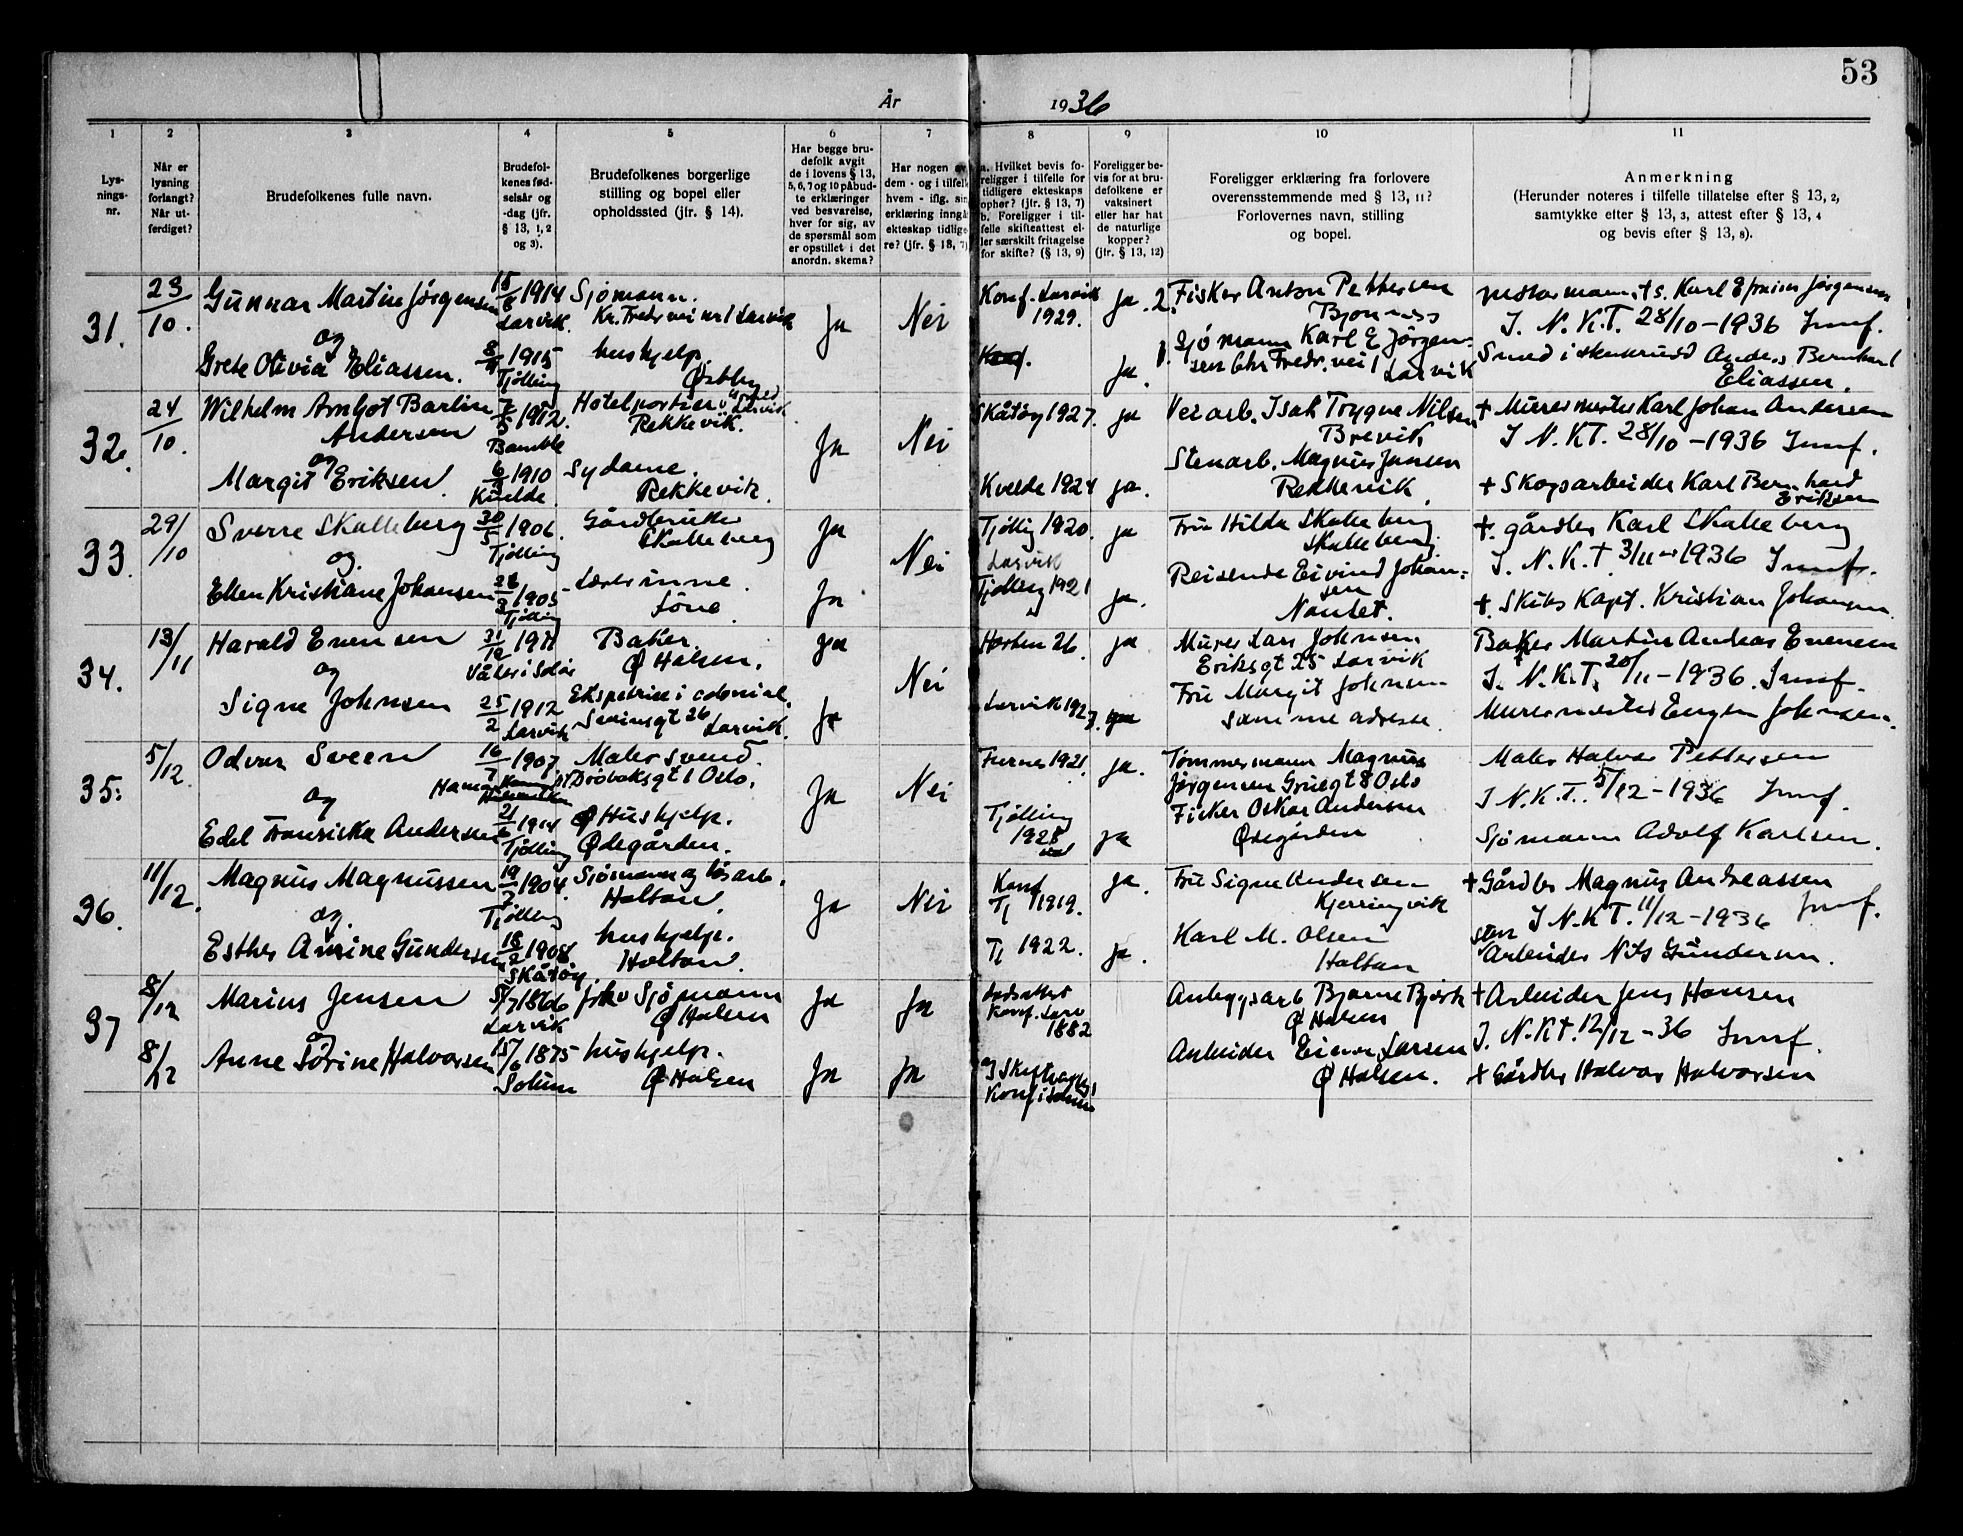 53
År 1936
1 2 3 4 5 6 7 8 9 10 11
Lys-
nings-
nr.
Når er
lysning
forlangt?
Når ut-
ferdiget?
Brudefolkenes fulle navn.
Brudefol-
kenes fød-
selsår og
-dag (jfr.
§ 13, 1, 2
og 3).
Brudefolkenes borgerlige
stilling og bopel eller
opholdssted (jfr. § 14).
Har begge bru-
defolk avgit
de i lovens § 13,
5, 6, 7 og 10 påbud-
te erklæringer
ved besvarelse,
hver for sig, av
de spørsmål som
er opstillet i det
anordn. skema?
Har nogen av
dem - og i tilfelle
hvem - iflg. sin
erklæring inngå
ekteskap tidlige-
re? (jfr. § 13, 7)
a. Hvilket bevis fo-
religger i tilfelle for
tidligere ekteskaps
ophør? (jfr. § 13, 7)
b. Foreligger i til-
felle skifteattest el-
ler særskilt fritagelse
for skifte? (§ 13, 9)
Foreligger be-
vis for at bru-
defolkene er
vaksinert
eller har hat
de naturlige
kopper?
(jfr. § 13, 12)
Foreligger erklæring fra forlovere
overensstemmende med § 13, 11?
Forlovernes navn, stilling
og bopel.
Anmerkning
(Herunder noteres i tilfelle tillatelse efter § 13, 2,
samtykke efter § 13, 3, attest efter § 13, 4
og bevis efter § 13, 8).
31.
23/10.
Gunnar Martin Jørgensen
og
Grete Olivia Eliassen.
1914
Larvik.
1915
Tjølling
Sjømann.
Kr. Fredr vei nr 1 Larvik
hushjelp.
Østby
Ja
Nei
Konf. Larvik
1929.
Konf.
ja. 2.
ja 1.
Fisker Anton Pettersen
Bjønnes
Sjømann Karl E Jørgen-
sen Chr Fredr. vei 1 Larvik
Karl Efraim Jørgensen
I. N. K. T. 28/10 - 1936
Smed Anders Bernhard
Eliassen.
32.
24/10.
Wilhelm Arnljot Barlin
Andersen
og
Margit Eriksen.
1912.
Bamble
1910
Kvelde
Hotelportier
Larvik
Rekkevik.
Sydame.
Rekkevik.
Ja
Nei
Skåtøy 1927.
Kvelde 1924
ja
ja.
Isak Trygve Nilsen
Brevik
Stenarb. Magnus Jansen
Rekkevik.
+ Murermester Karl Johan Andersen
I N. K.T. 28/10 - 1936
+ Skogsarbeider Karl Bernhard
Eriksen
33.
29/10
Sverre Skalleberg
og.
Ellen Kristiane Johansen
30/5 1906.
Tjølling
1905
Tjølling
Gårdbruker
Skalleberg
Lærerinne.
Ja
Ja
Nei
Tjøllig 1920.
Larvik
Tjølling 1921
ja
ja.
Fru Hilda Skalleberg
Skalleberg.
Reisende Eivind Johan-
sen
Nanset.
+ gårdbr Karl Skalleberg
I. N. K. T. 3/11 - 1936
+ Skibs Kapt. Kristian Johansen
34.
13/11
Harald Evensen
og
Signe Johnsen
Våler i Solør
25/2 1912
Larvik
Baker.
Ø Halsen.
26
Larvik.
Ja
Ja
Nei
Horten 26.
Larvik 1927.
ja
ja
Murer Lars Johnsen
Eriksgt 25 Larvik
Fru Margit Johnsen
samme adresse
Baker Martin Andreas Evensen
I. N. K. T. 20/11 - 1936.
Murermester Eugen Johnsen.
35.
5/12.
Odvar Sveen
og
Edel Fransiska Andersen
16/7 1907
21/6 1914
Tjølling
Malersvend.
Drøbaksgt 1 Oslo.
Hushjelp.
Ødegården.
Ja
Nei
Furnes 1921
Tjølling
1928
ja.
ja
Tømmermann Magnus
Jørgensen Gruegt 8 Oslo
Fisker Oskar Andersen
Ødegården
Maler Halvor Pettersen
I N. K. T. 5/12 - 1936
Sjømann Adolf Karlsen.
36.
11/12.
Magnus Magnussen
og.
Esther Amine Gundersen
19/7 1904.
Tjølling
18/2 1908
Skåtøy
Sjømann og løsarb.
Holtan.
hushjelp.
Holtan.
Ja
Nei
Konf
Tj 1919.
Tj 1922.
ja.
ja.
Fru Signe Andersen
Kjerringvik
Karl M. Olsen
Holtan
+ Gårdbr Magnus Andreassen
I N. K T. 11/12 - 1936
Arbeider Nils Gundersen.
37
8/12
8/12
Marius Jensen
og
Anne Sørine Halvorsen
1866
Larvik
15/6 1875
Solum
fhv Sjømann
Ø Halsen
hushjelp.
Ø Halsen
Ja
Ja
Ja
Ja
Konf. Larv
1882
Anleggsarb Bjarne Bjørk
Ø Halsen
Arbeider Einar Larsen
Ø Halsen.
+ Arbeider Jens Hansen
I. N. K t. 12/12 - 36
+ Gårdbr Halvor Halvorsen